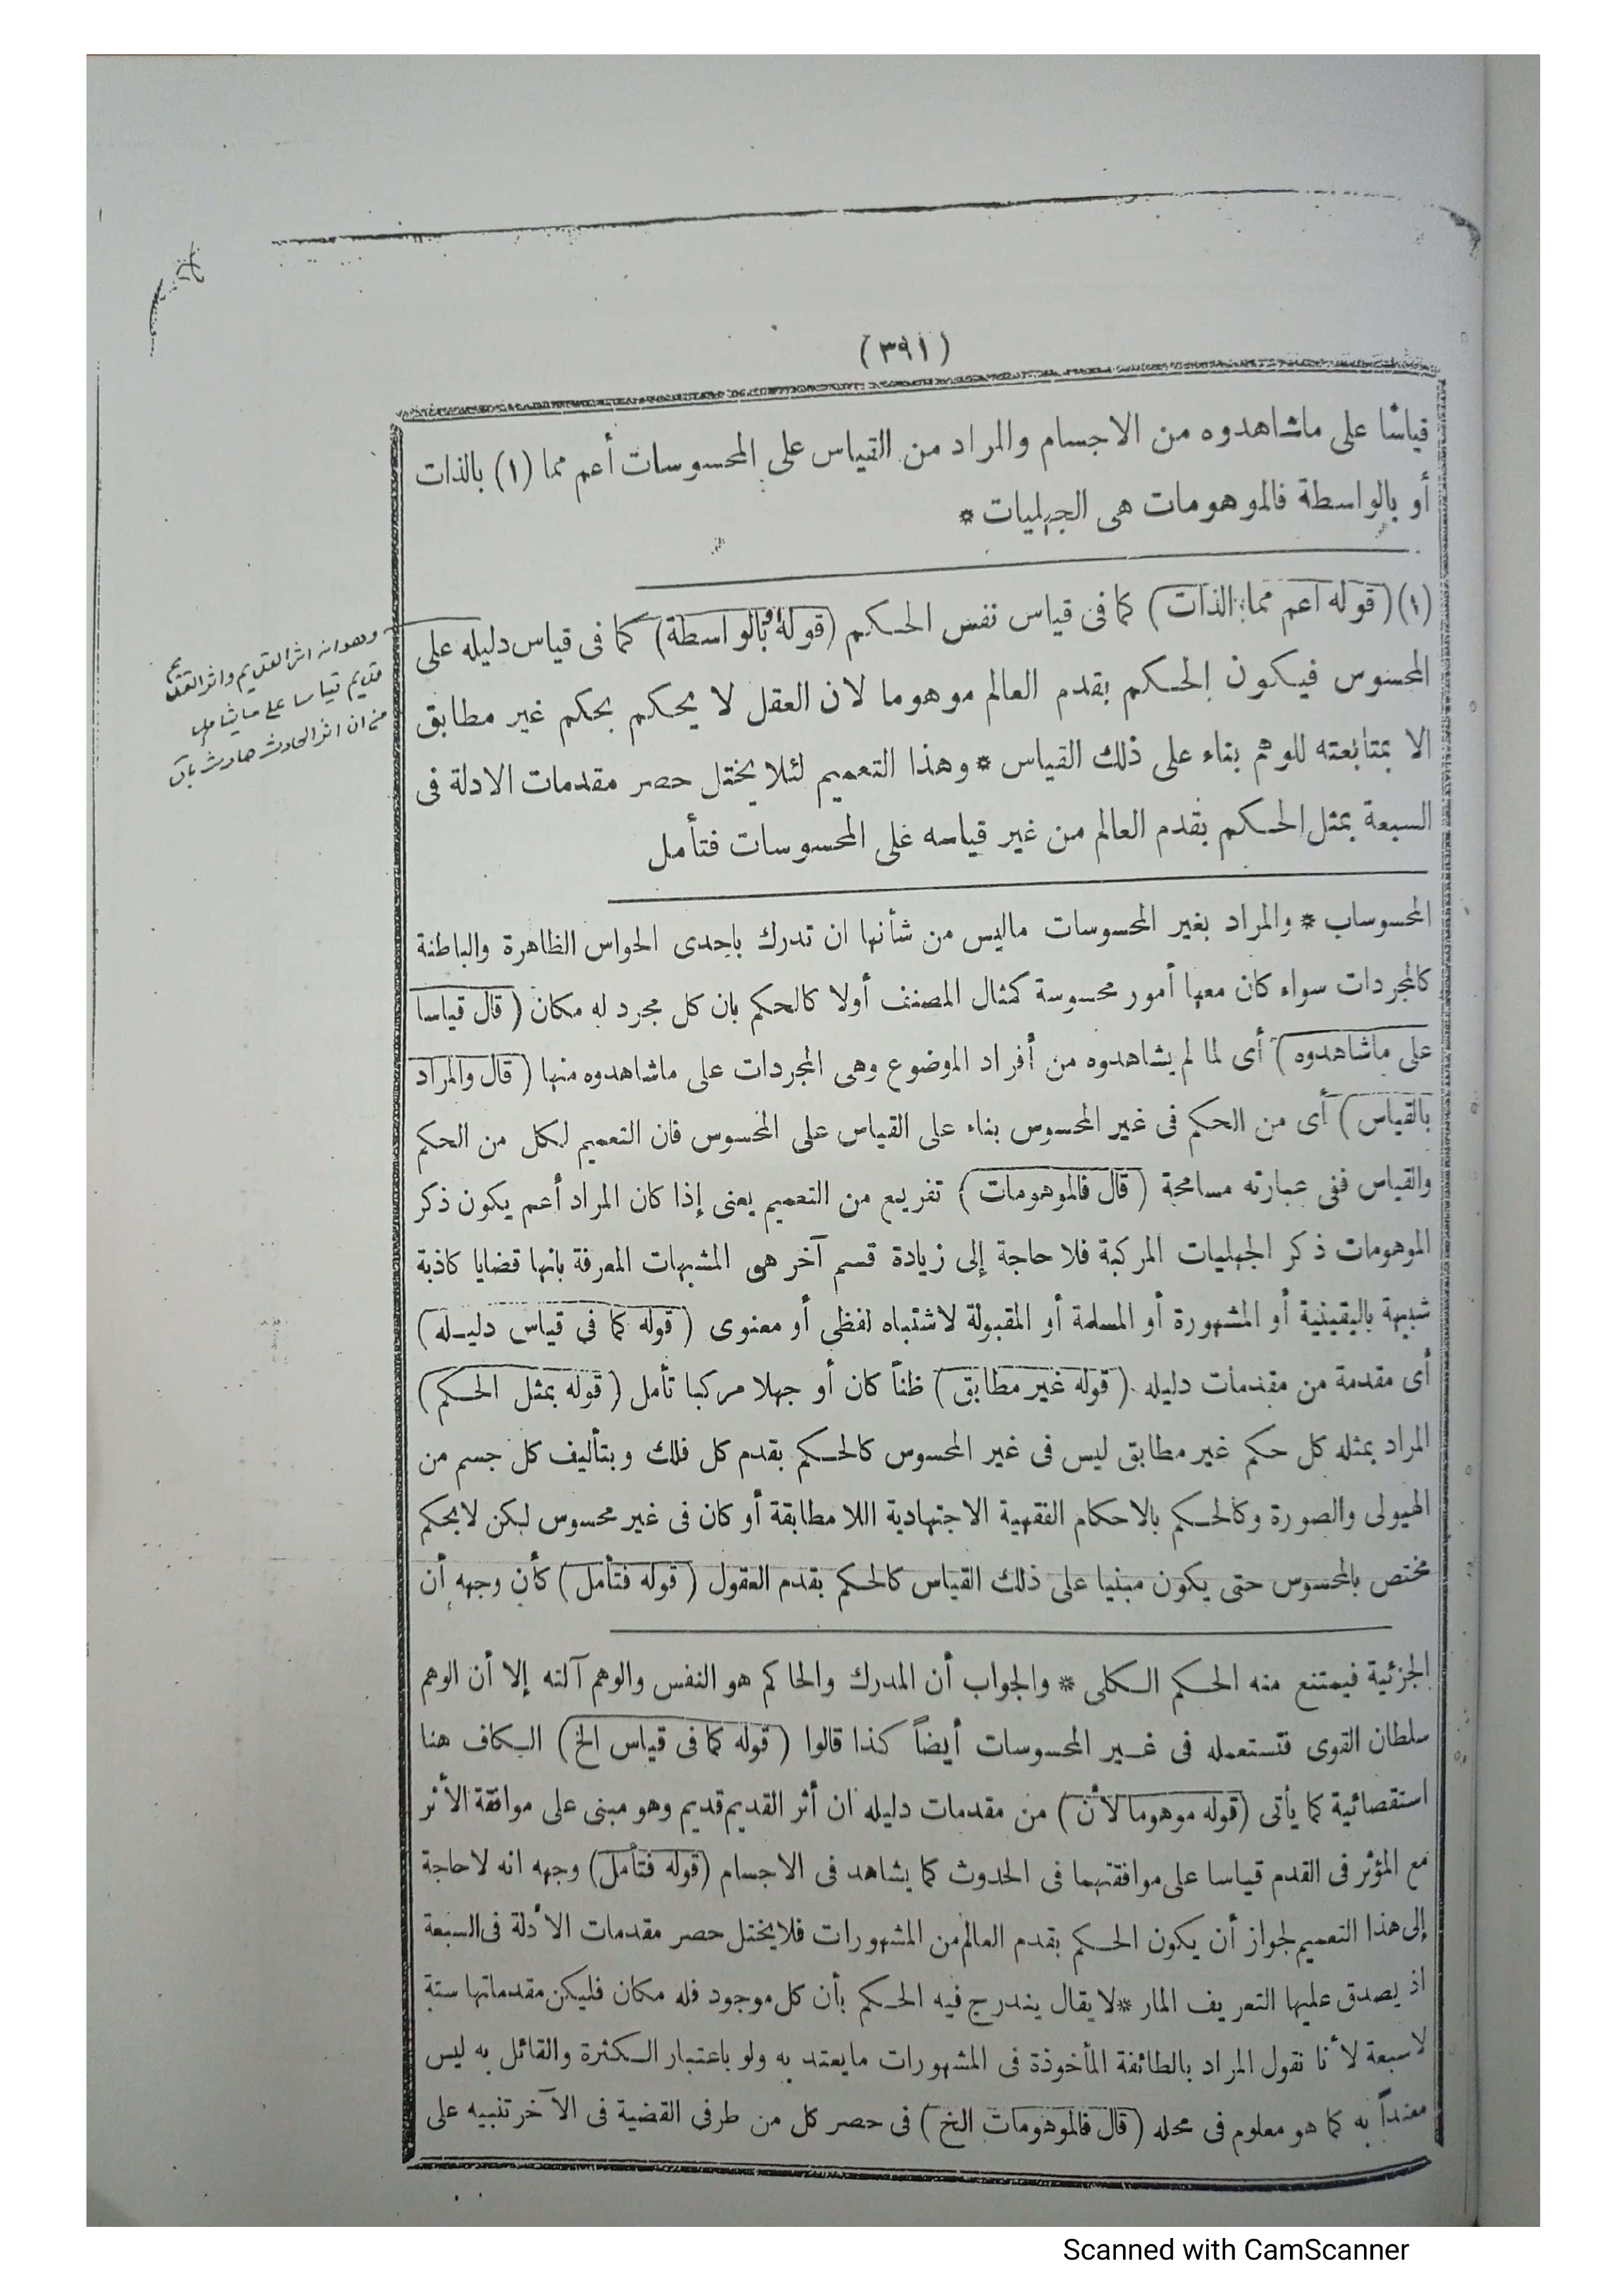 (٣٩١)
قياسًا على ماشاهدوه من الاجسام والمراد من القياس على المحسوسات أعم مما (١) بالذات
أو بالواسطة فالموهومات هى الجهليات *
(١) (قوله اعم مما بالذات) كما فى قياس نفس الحكم (قوله أو بالواسطة) كما فى قياس دليله على
المحسوس فيكون الحكم بقدم العالم موهوما لان العقل لا يحكم بحكم غير مطابق
الا بمتابعته للوهم بناء على ذلك القياس * وهذا التعميم لئلا يختل حصر مقدمات الادلة فى
السبعة بمثل الحكم بقدم العالم من غير قياسه على المحسوسات فتأمل
المحسوساب * والمراد بغير المحسوسات ماليس من شأنها ان تدرك باحدى الحواس الظاهرة والباطنة
كالمجردات سواء كان معها أمور محسوسة كمثال المصنف أولا كالحكم بان كل مجرد له مكان (قال قياسا
على ماشاهدوه) أى لما لم يشاهدوه من أفراد الموضوع وهى المجردات على ماشاهدوه منها (قال والمراد
بالقياس) أى من الحكم فى غير المحسوس بناء على القياس على المحسوس فان التعميم لكل من الحكم
والقياس ففى عبارته مسامحة (قال فالموهومات) تفريع من التعميم يعنى إذا كان المراد أعم يكون ذكر
الموهومات ذكر الجهليات المركبة فلا حاجة إلى زيادة قسم آخر هى المشبهات المعرفة بانها قضايا كاذبة
شبيهة باليقينية أو المشهورة أو المسلمة أو المقبولة لاشتباه لفظى أو معنوى (قوله كما فى قياس دليله)
أى مقدمة من مقدمات دليله (قوله غير مطابق) ظناً كان أو جهلا مركبا تأمل (قوله بمثل الحكم)
المراد بمثله كل حكم غير مطابق ليس فى غير المحسوس كالحكم بقدم كل فلك وبتأليف كل جسم من
الهيولى والصورة وكالحكم بالاحكام الفقهية الاجتهادية اللا مطابقة أو كان فى غير محسوس لكن لا بحكم
مختص بالمحسوس حتى يكون مبنيا على ذلك القياس كالحكم بقدم العقول (قوله فتأمل) كأن وجهه أن
الجزئية فيمتنع منه الحكم الكلى * والجواب أن المدرك والحاكم هو النفس والوهم آلته إلا أن الوهم
سلطان القوى فتستعمله فى غير المحسوسات أيضاً كذا قالوا (قوله كما فى قياس الخ) الكاف هنا
استقصائية كما يأتى (قوله موهوما لأن) من مقدمات دليله ان أثر القديم قديم وهو مبنى على موافقة الأثر
مع المؤثر فى القدم قياسا على موافقتهما فى الحدوث كما يشاهد فى الاجسام (قوله فتأمل) وجهه انه لا حاجة
إلى هذا التعميم لجواز أن يكون الحكم بقدم العالم من المشهورات فلا يختل حصر مقدمات الأدلة فى السبعة
اذ يصدق عليها التعريف المار * لا يقال يندرج فيه الحكم بأن كل موجود فله مكان فليكن مقدماتها ستة
لا سبعة لأنا نقول المراد بالطائفة المأخوذة فى المشهورات مايعتد به ولو باعتبار الكثرة والقائل به ليس
معتداً به كما هو معلوم فى محله (قال فالموهومات الخ) فى حصر كل من طرفى القضية فى الآخر تنبيه على
وهو انه اثر القديم واثر القديم
قديم قياسا على ما يشاهد
من ان اثر الحادث حادث
Scanned with CamScanner